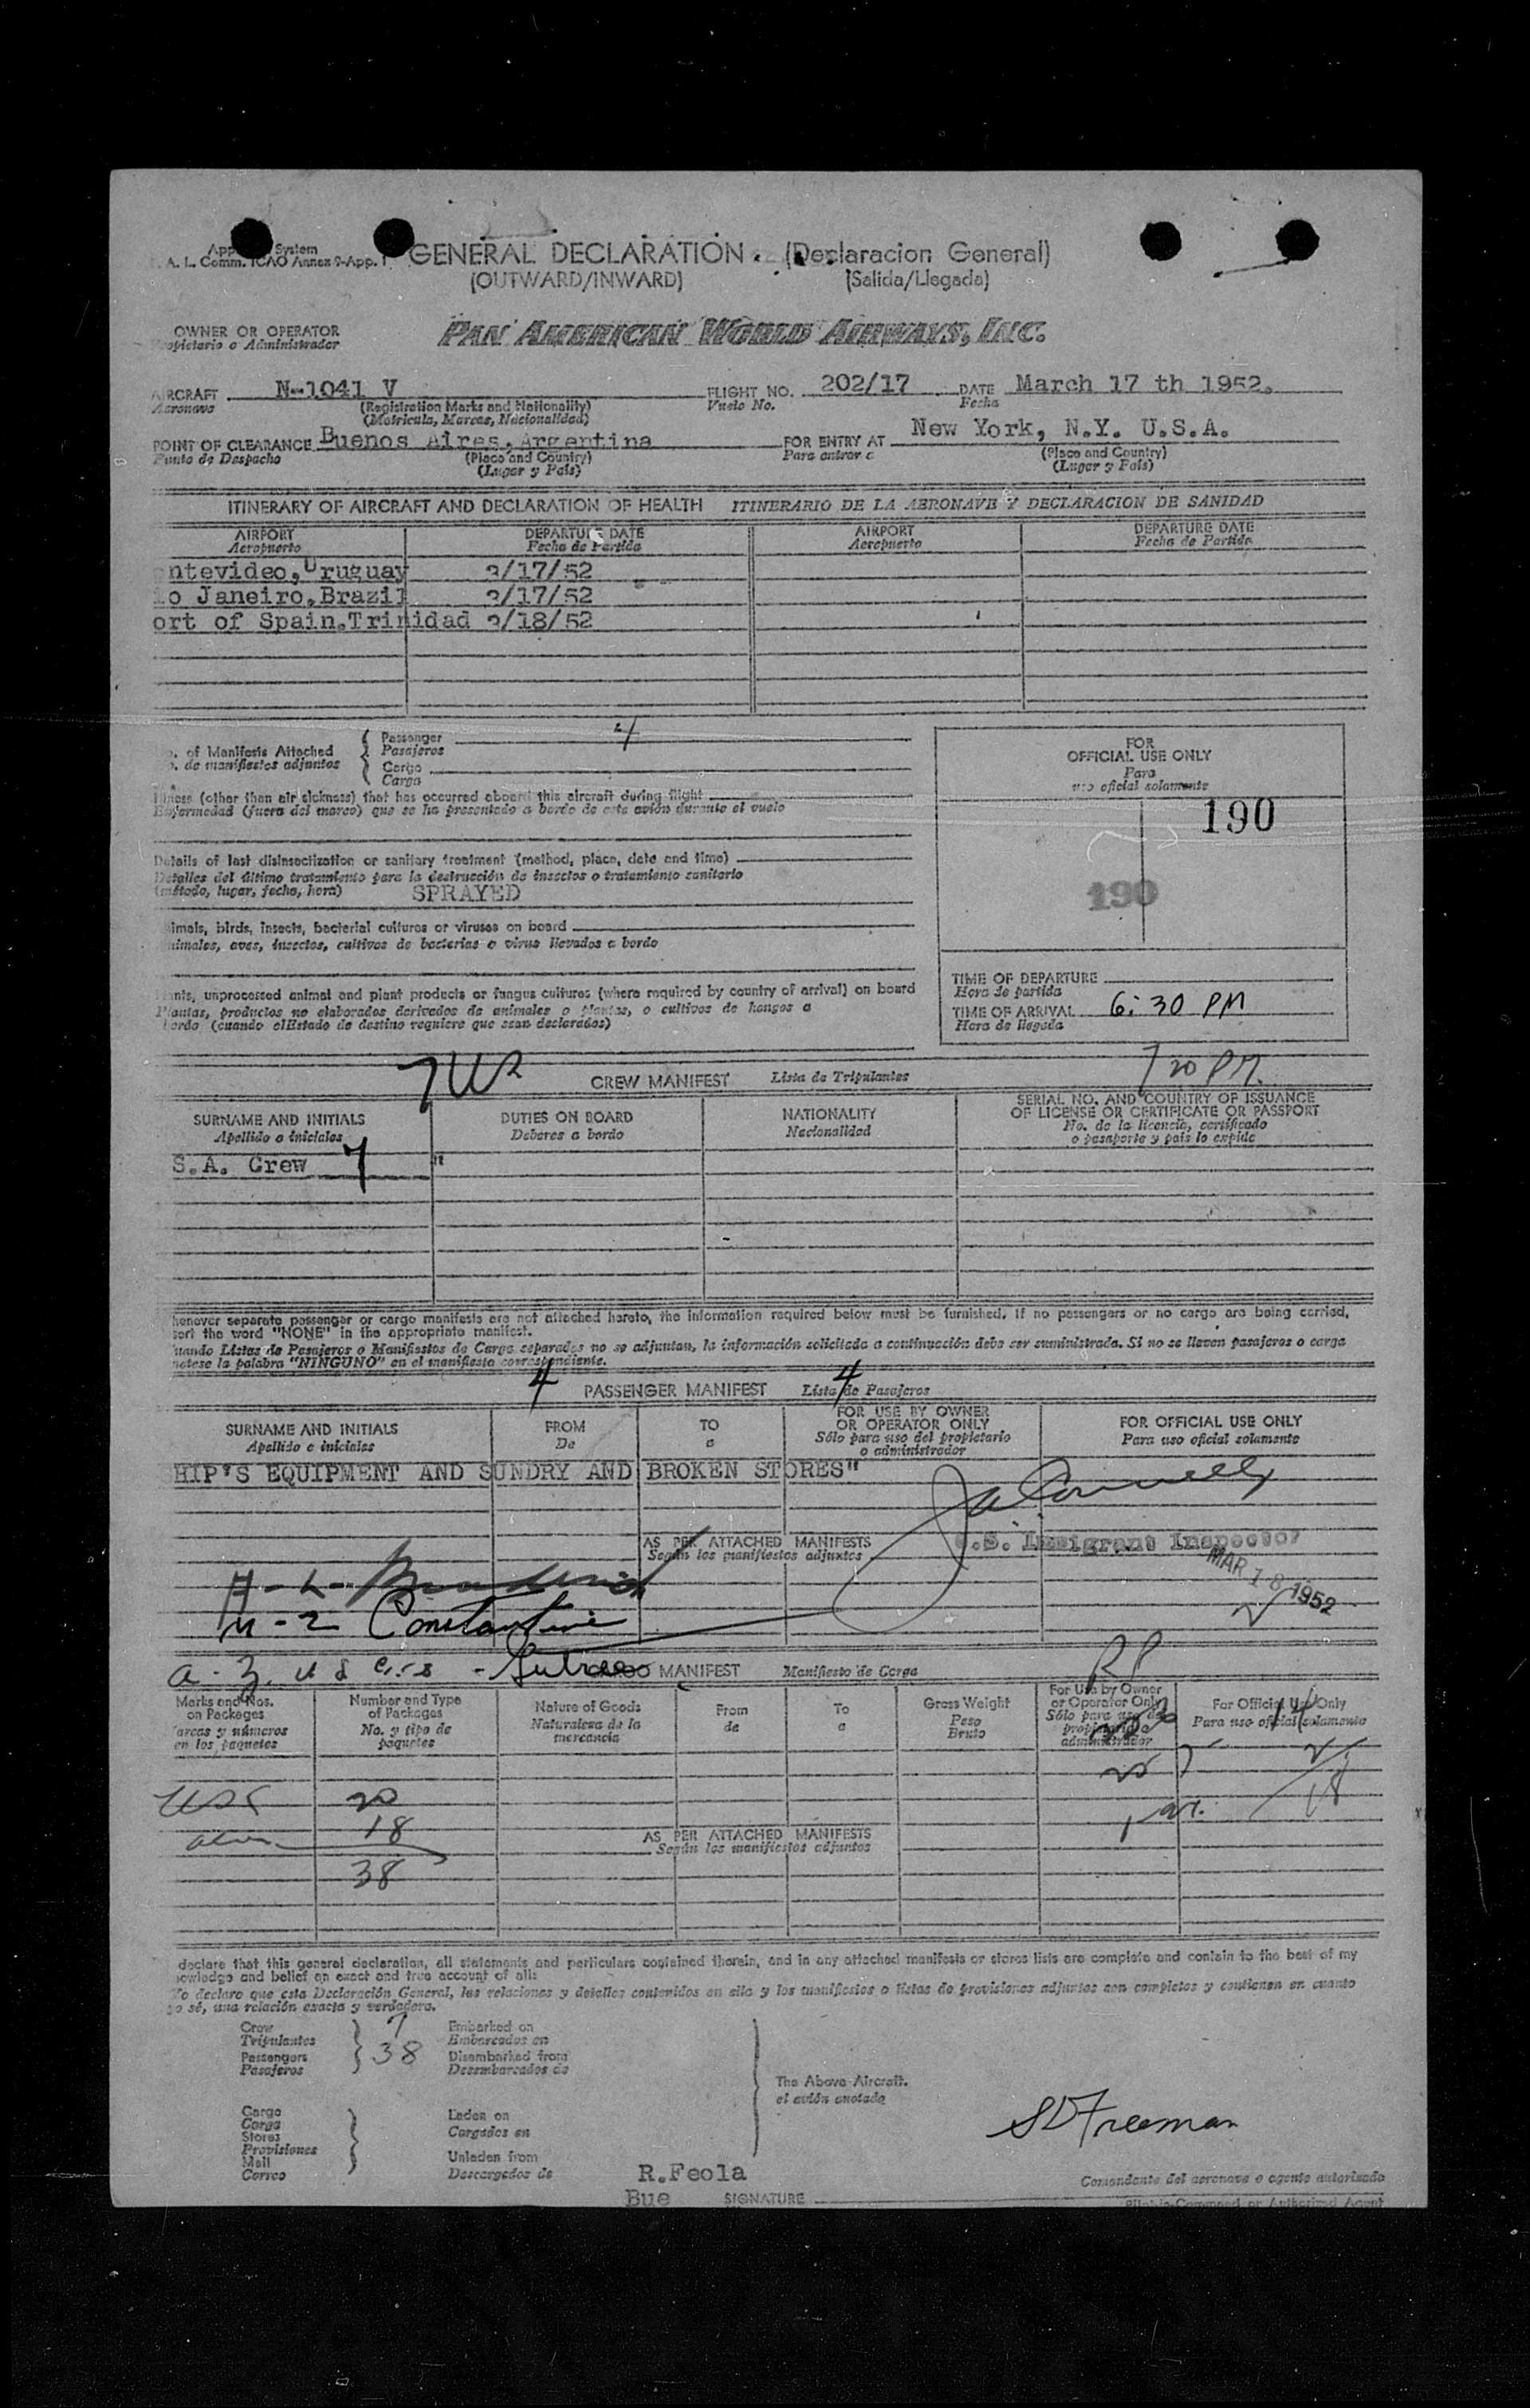 App System
A. L. Comm. ICAO Annex 9-App. 1
GENERAL DECLARATION (Declaracion General)
(OUTWARD/INWARD) (Salida/Llegada)
OWNER OR OPERATOR
opietario o Administrador
PAN AMERICAN WORLD AIRWAYS, INC.
AIRCRAFT N-1041 V FLIGHT NO. 202/17 DATE March 17 th 1952.
Aeronave (Registration Marks and Nationality) Vuelo No. Fecha
(Matricula, Marcas, Nacionalidad)
POINT OF CLEARANCE Buenos Aires, Argentina FOR ENTRY AT New York, N.Y. U.S.A.
Punto de Despacho (Place and Country) Para entrar a (Place and Country)
(Lugar y País) (Lugar y País)
ITINERARY OF AIRCRAFT AND DECLARATION OF HEALTH ITINERARIO DE LA AERONAVE Y DECLARACION DE SANIDAD
AIRPORT DEPARTURE DATE AIRPORT DEPARTURE DATE
Aeropuerto Fecha de Partida Aeropuerto Fecha de Partida
ntevideo, Uruguay 3/17/52
io Janeiro, Brazil 3/17/52
ort of Spain.Trinidad 3/18/52
o. of Manifests Attached Passenger 4
o. de manifiestos adjuntos Pasajeros
Cargo
Carga
FOR
OFFICIAL USE ONLY
Para
uso oficial solamente
190
190
Illness (other than air sickness) that has occurred aboard this aircraft during flight
Enfermedad (fuera del mareo) que se ha presentado a bordo de este avión durante el vuelo
Details of last disinsectization or sanitary treatment (method, place, date and time)
Detalles del último tratamiento para la destrucción de insectos o tratamiento sanitario
(método, lugar, fecha, hora) SPRAYED
imals, birds, insects, bacterial cultures or viruses on board
nimales, aves, insectos, cultivos de bacterias o virus llevados a bordo
ants, unprocessed animal and plant products or fungus cultures (where required by country of arrival) on board
Plantas, productos no elaborados derivados de animales o plantas, o cultivos de hongos a
bordo (cuando elEstado de destino requiere que sean declarados)
TIME OF DEPARTURE
Hora de partida
TIME OF ARRIVAL 6:30 PM
Hora de llegada
7 20 PM.
CREW MANIFEST Lista de Tripulantes
SURNAME AND INITIALS DUTIES ON BOARD NATIONALITY SERIAL NO. AND COUNTRY OF ISSUANCE
OF LICENSE OR CERTIFICATE OR PASSPORT
Apellido o iniciales Deberes a bordo Nacionalidad No. de la licencia, certificado
o pasaporte y país lo expide
S.A. Crew 7 "
henever separate passenger or cargo manifests are not attached hereto, the information required below must be furnished. If no passengers or no cargo are being carried,
sert the word "NONE" in the appropriate manifest.
uando Listas de Pasajeros o Manifiestos de Carga separados no se adjuntan, la información solicitada a continuación debe ser suministrada. Si no se lleven pasajeros o carga
notese la palabra "NINGUNO" en el manifiesto correspondiente.
4 PASSENGER MANIFEST Lista de Pasajeros 4
SURNAME AND INITIALS FROM TO FOR USE BY OWNER
OR OPERATOR ONLY FOR OFFICIAL USE ONLY
Apellido e iniciales De a Sólo para uso del propietario
o administrador Para uso oficial solamente
HIP'S EQUIPMENT AND SUNDRY AND BROKEN STORES"
AS PER ATTACHED MANIFESTS
Según los manifiestos adjuntos
U.S. Immigrant Inspector
MAR 18 1952
Constantine
MANIFEST Manifiesto de Carga
Marks and Nos.
on Packages Number and Type
of Packages Nature of Goods From To Gross Weight For Use by Owner
or Operator Only For Official Use Only
arcas y números
en los paquetes No. y tipo de
paquetes Naturaleza de la
mercancía de a Peso
Bruto Sólo para uso del
propietario o
administrador Para uso oficial solamente
USC 20
alien 18
38
AS PER ATTACHED MANIFESTS
Según los manifiestos adjuntos
declare that this general declaration, all statements and particulars contained therein, and in any attached manifests or stores lists are complete and contain to the best of my
nowledge and belief an exact and true account of all:
Yo declaro que esta Declaración General, las relaciones y detalles contenidos en ella y los manifiestos o listas de provisiones adjuntos son completos y contienen en cuanto
yo sé, una relación exacta y verdadera.
Crew 7 Embarked on
Tripulantes Embarcados en
Passengers 38 Disembarked from
Pasajeros Desembarcados de
The Above Aircraft.
el avión anotado
Cargo
Carga
Stores
Provisiones
Mail
Correo
Laden on
Cargados en
Unladen from
Descargados de
SD Freeman
R.Feola
Comandante del aeronave o agente autorizado
Bue SIGNATURE
Pilot-in-Command or Authorized Agent